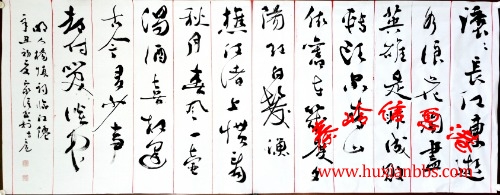 滚滚长江东逝
水浪花淘尽
英雄是非成败
转头空青山
依旧在几度夕
阳红白发渔
樵江渚上惯看
秋月春风一壶
浊酒喜相逢
古今多少事
都付笑谈中
明人杨慎词临江仙
辛丑初夏
www.huxianbbs.com